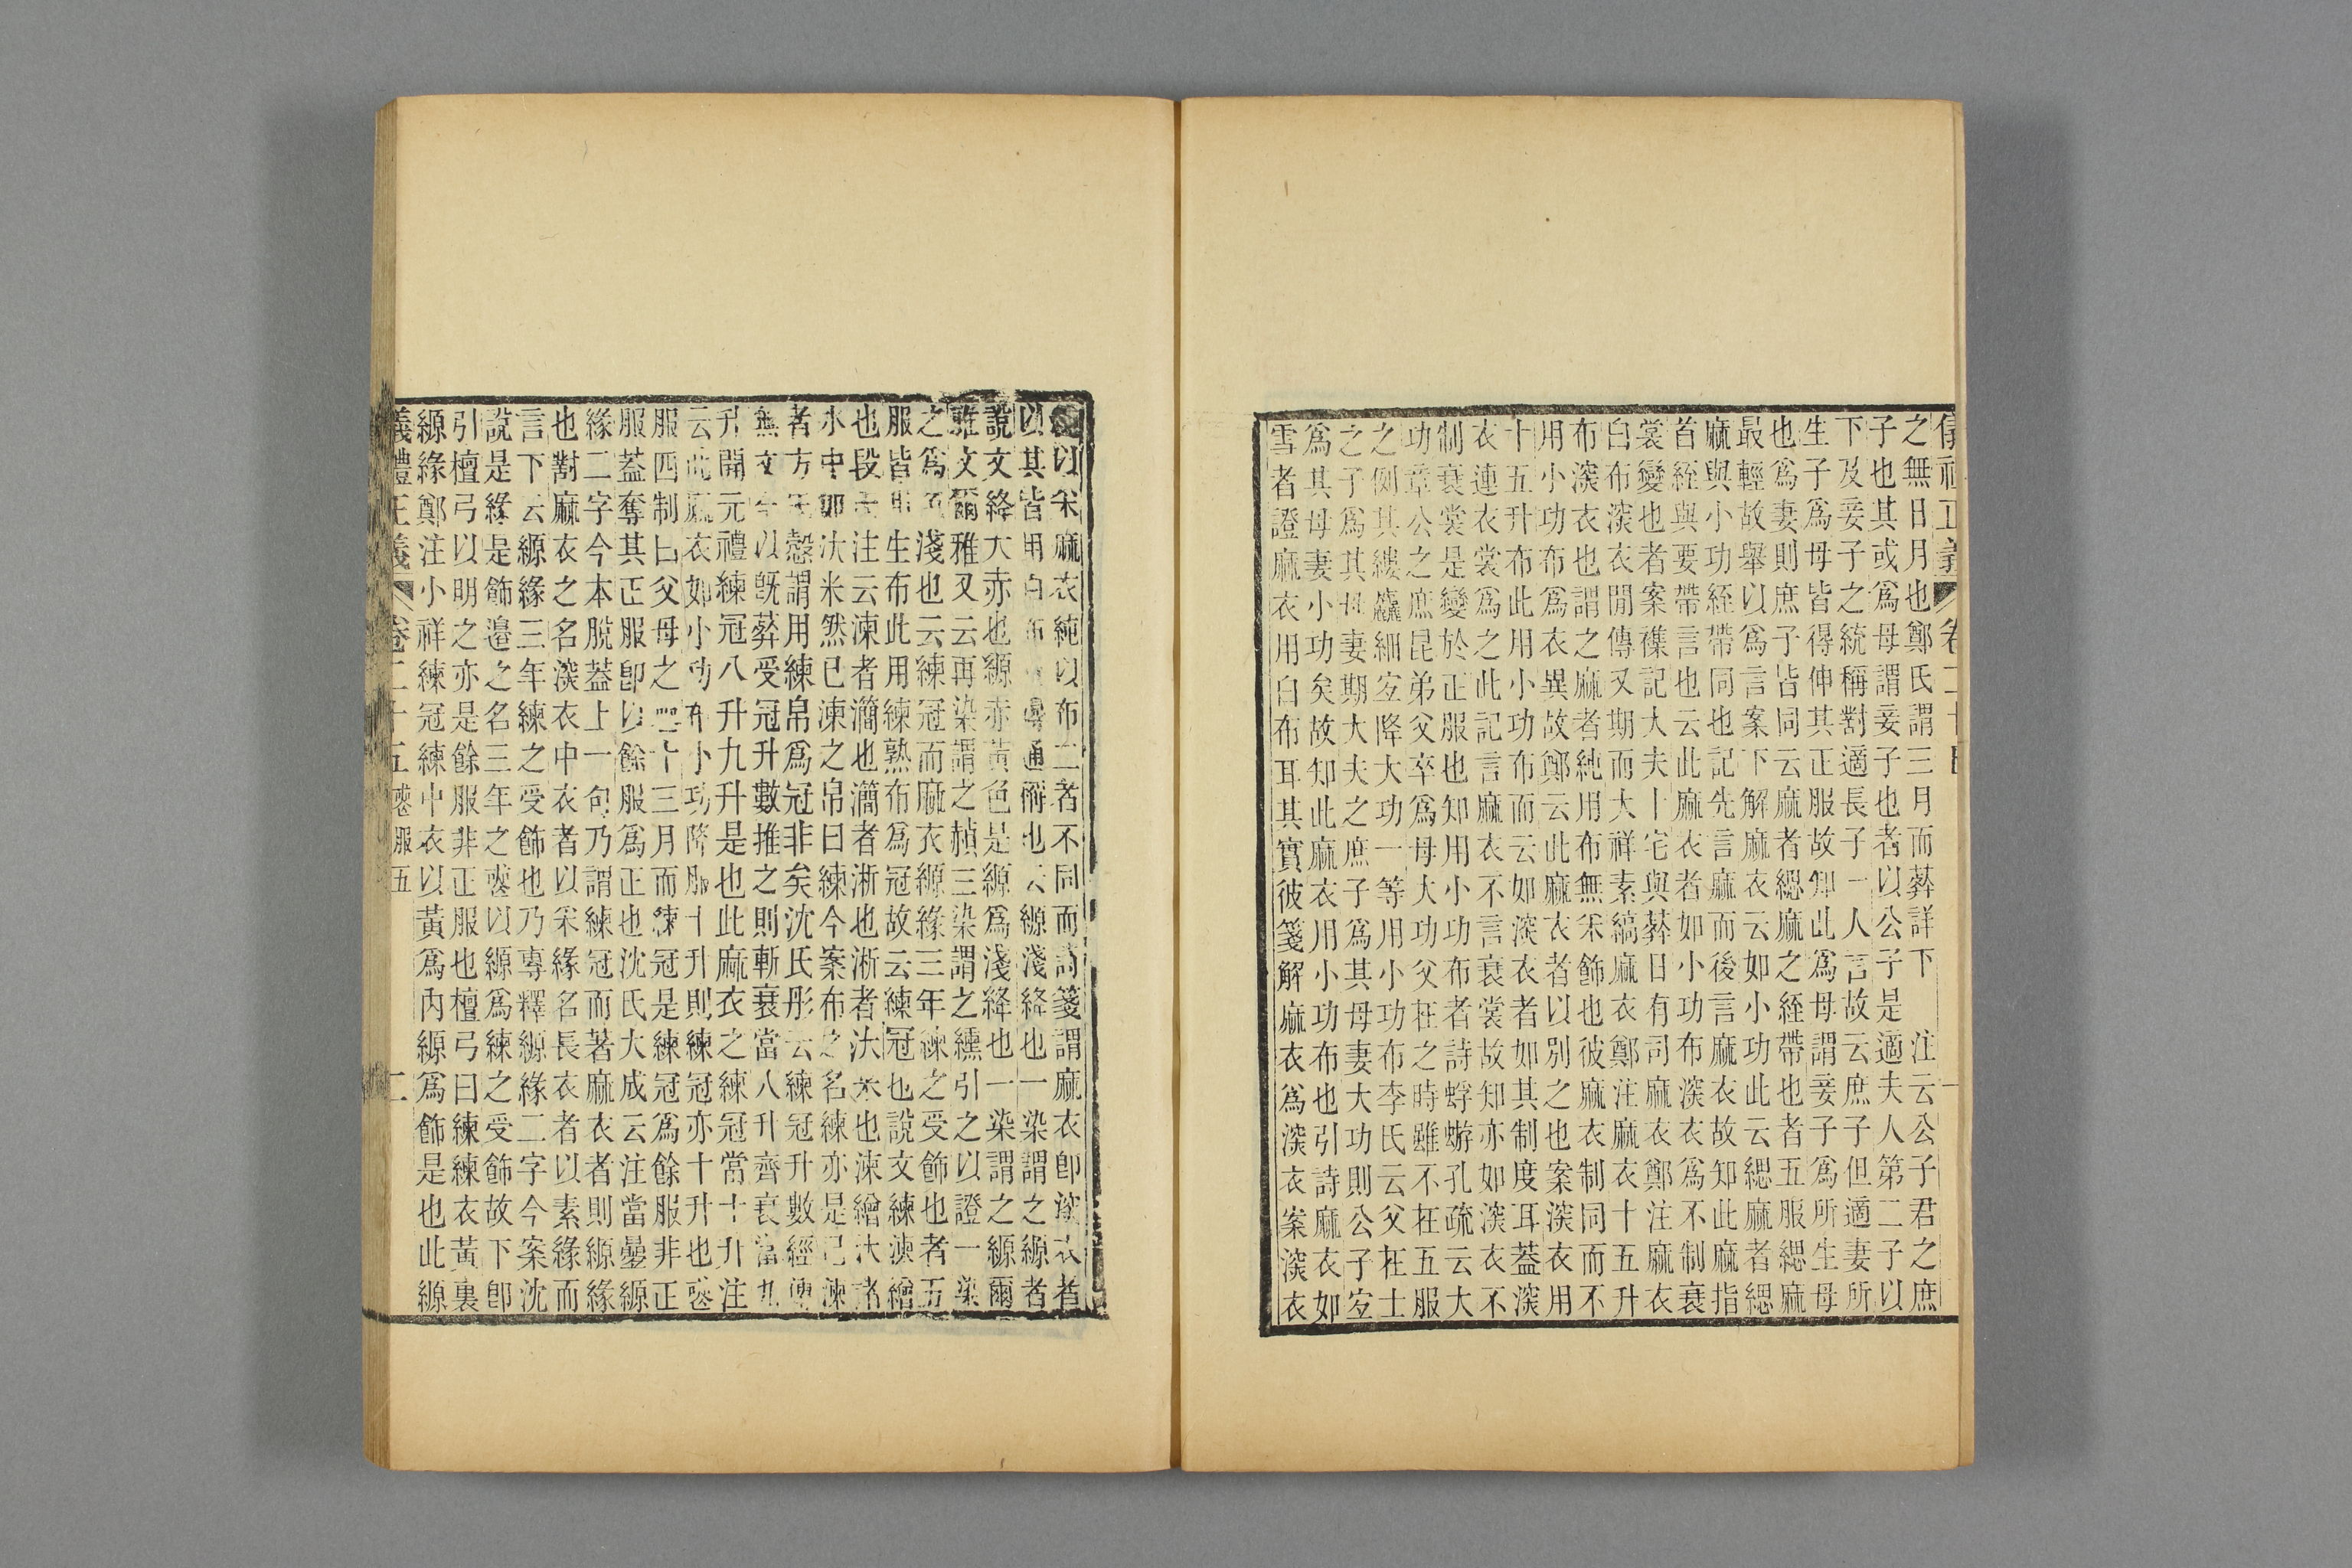 之無日月也鄭氏謂三月而葬詳下　注云公子君之庶
子也其或爲母謂妾子也者以公子是適夫人第二子以
下及妾子之統稱對適長子一人言故云庶子但適妻所
生子爲母皆得伸其正服故知此爲母謂妾子爲所生母
也爲妻則庶子皆同云麻者緦麻之絰帶也者五服緦麻
最輕故舉以爲言案下解麻衣云如小功此云緦麻者緦
麻與小功絰帶同也記先言麻而後言麻衣故知此麻指
首絰與要帶言也云此麻衣者如小功布深衣爲不制衰
裳變也者案襍記大夫卜宅與葬日有司麻衣鄭注麻衣
白布深衣閒傳又期而大祥素縞麻衣鄭注麻衣十五升
布深衣也謂之麻者純用布無采飾也彼麻衣制同而不
用小功布爲衣異故鄭云此麻衣者以別之也案深衣用
十五升布此用小功布而云如深衣者如其制度耳蓋深
衣連衣裳爲之此記言麻衣不言衰裳故知亦如深衣不
制衰裳是變於正服也知用小功布者詩蜉蝣孔疏云大
功章公之庶昆弟父卒爲母大功父在之時雖不在五服
之例其縷麤細宜降大功一等用小功布李氏云父在士
之子爲其母妻期大夫之庶子爲其母妻大功則公子宜
爲其母妻小功矣故知此麻衣用小功布也引詩麻衣如
雪者證麻衣用白布耳其實彼箋解麻衣爲深衣案深衣
以采麻衣純以布二者不同而詩箋謂麻衣卽深衣者
以其皆用白布 通稱也云縓淺絳也一染謂之縓者
說文絳大赤也縓赤黃色是縓爲淺絳也一染謂之縓爾
雅文爾雅又云再染謂之赬三染謂之纁引之以證一染
之爲 淺也云練冠而麻衣縓緣三年練之受飾也者五
服皆用生布此用練熟布爲冠故云練冠也說文練湅繒
也段 注云湅者㶕也㶕者淅也淅者汏米也湅繒汏諸
水中如汏米然已湅之帛曰練今案布之名練亦是已湅
者方 愨謂用練帛爲冠非矣沈氏彤云練冠升數經傳
無文 以旣葬受冠升數推之則斬衰當八升齊衰當九
升開元禮練冠八升九升是也此麻衣之練冠當十升注
云此麻衣如小功布小功降服十升則練冠亦十升也喪
服四制曰父母之喪十三月而練冠是練冠爲餘服非正
服蓋奪其正服卽以餘服爲正也沈氏大成云注當曡縓
緣二字今本脫蓋上一句乃謂練冠而著麻衣者則縓緣
也對麻衣之名深衣中衣者以采緣名長衣者以素緣而
言下云縓緣三年練之受飾也乃專釋縓緣二字今案沈
說是緣是飾邊之名三年之喪以縓爲練之受飾故下卽
引檀弓以明之亦是餘服非正服也檀弓曰練練衣黃裏
縓緣鄭注小祥練冠練中衣以黃爲內縓爲飾是也此縓